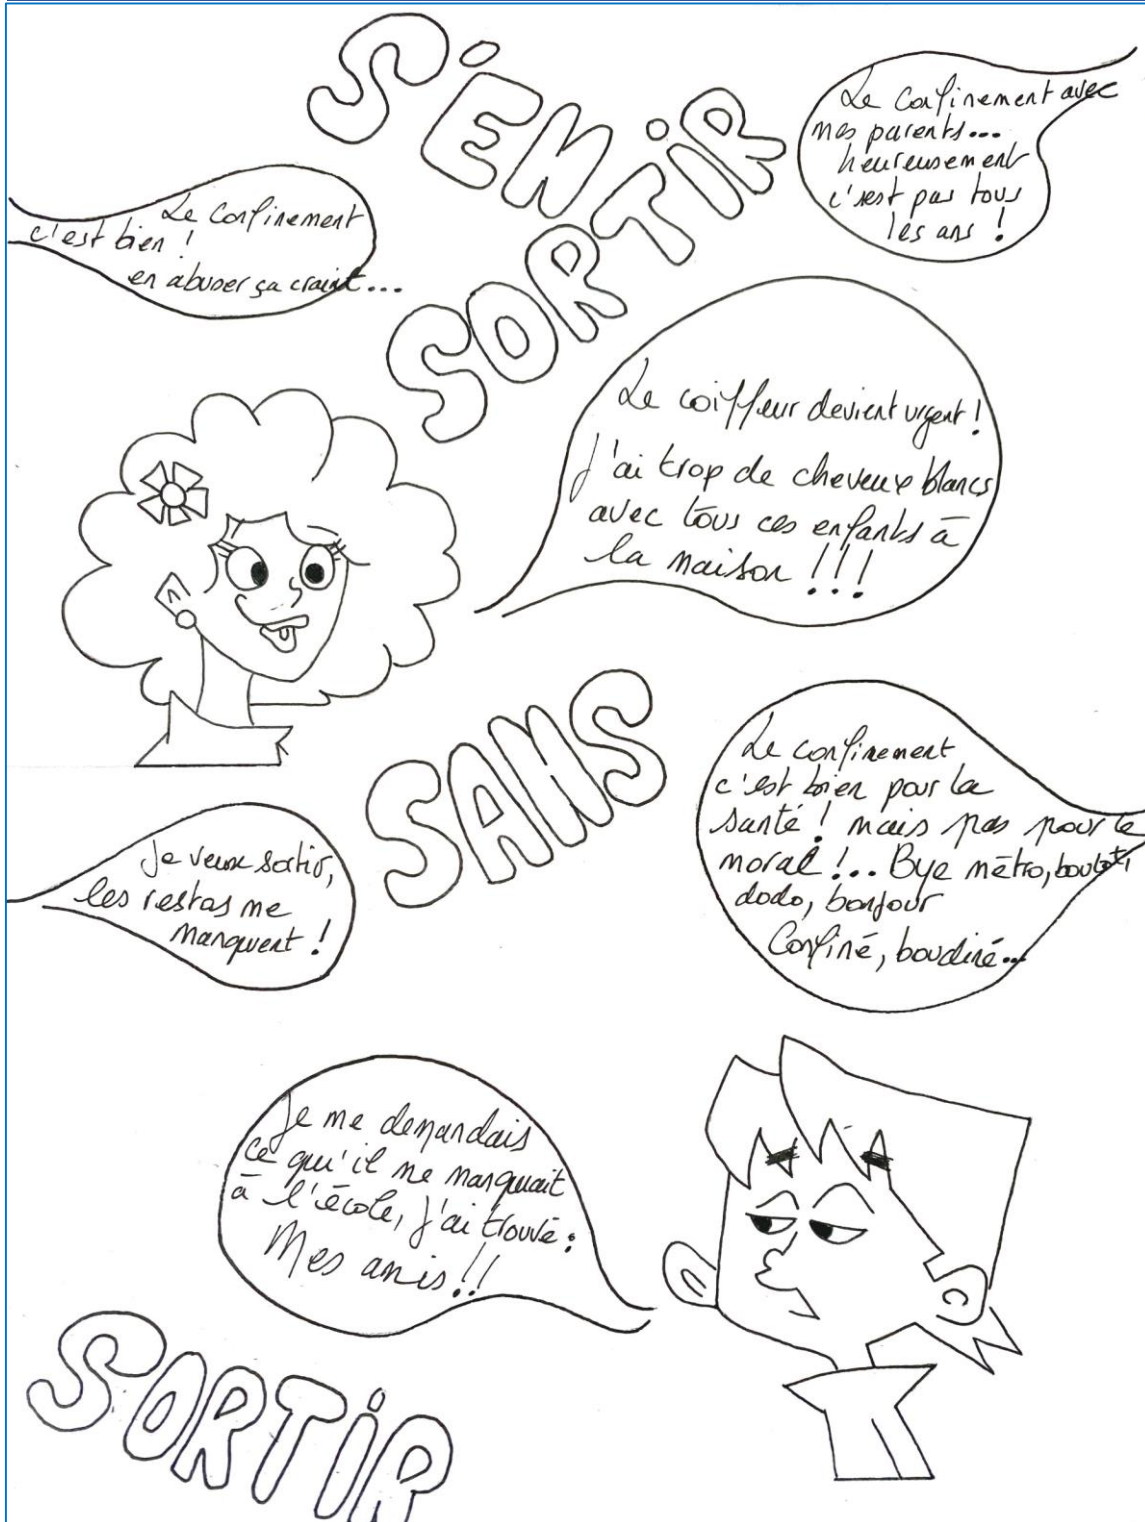 S'ÉN
SORTIR
SORTIR
Le confinement avec
mes parents...
heureusement
c'est pas tous
les ans !
Le confinement
c'est bien !
en abuser ça craint...
Le coiffeur devient urgent !
J'ai trop de cheveux blancs
avec tous ces enfants à
la maison !!!
SANS
Le confinement
c'est bien pour la
santé ! mais pas pour le
moral !... Bye métro, boulot,
dodo, bonjour
Confiné, boudiné...
Je veux sortir,
les restas me
manquent !
Je me demandais
ce qu'il me manquait
à l'école, j'ai trouvé :
Mes amis !!
SORTIR